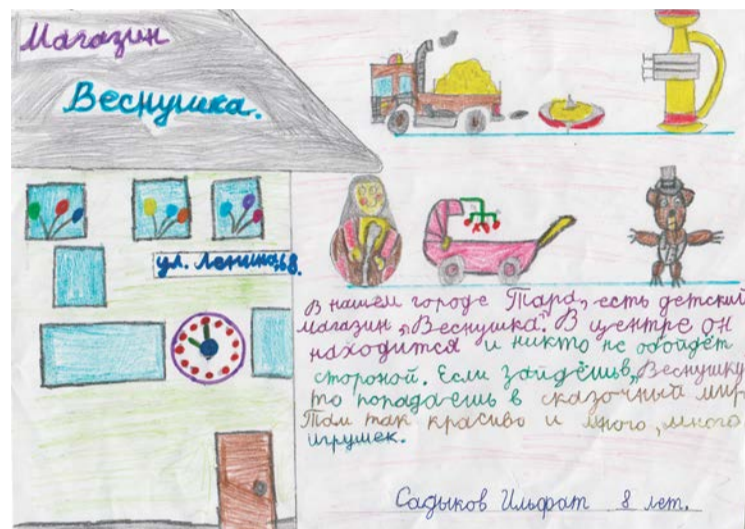 Магазин
Веснушка.
ул. Ленина, 68.
В нашем городе Тара, есть детский
магазин „Веснушка". В центре он
находится и никто не обойдёт
стороной. Если зайдёшь в „Веснушку
то попадаешь в сказочный мир.
Там так красиво и много, много
игрушек.
Садыков Ильфат 8 лет.